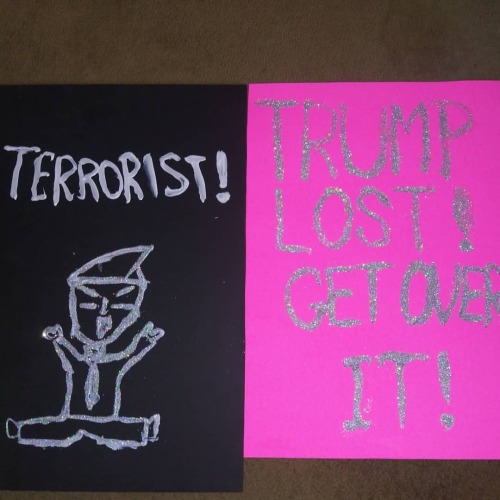 TERRORIST!
TRUMP
LOST!
GET OVER
IT!